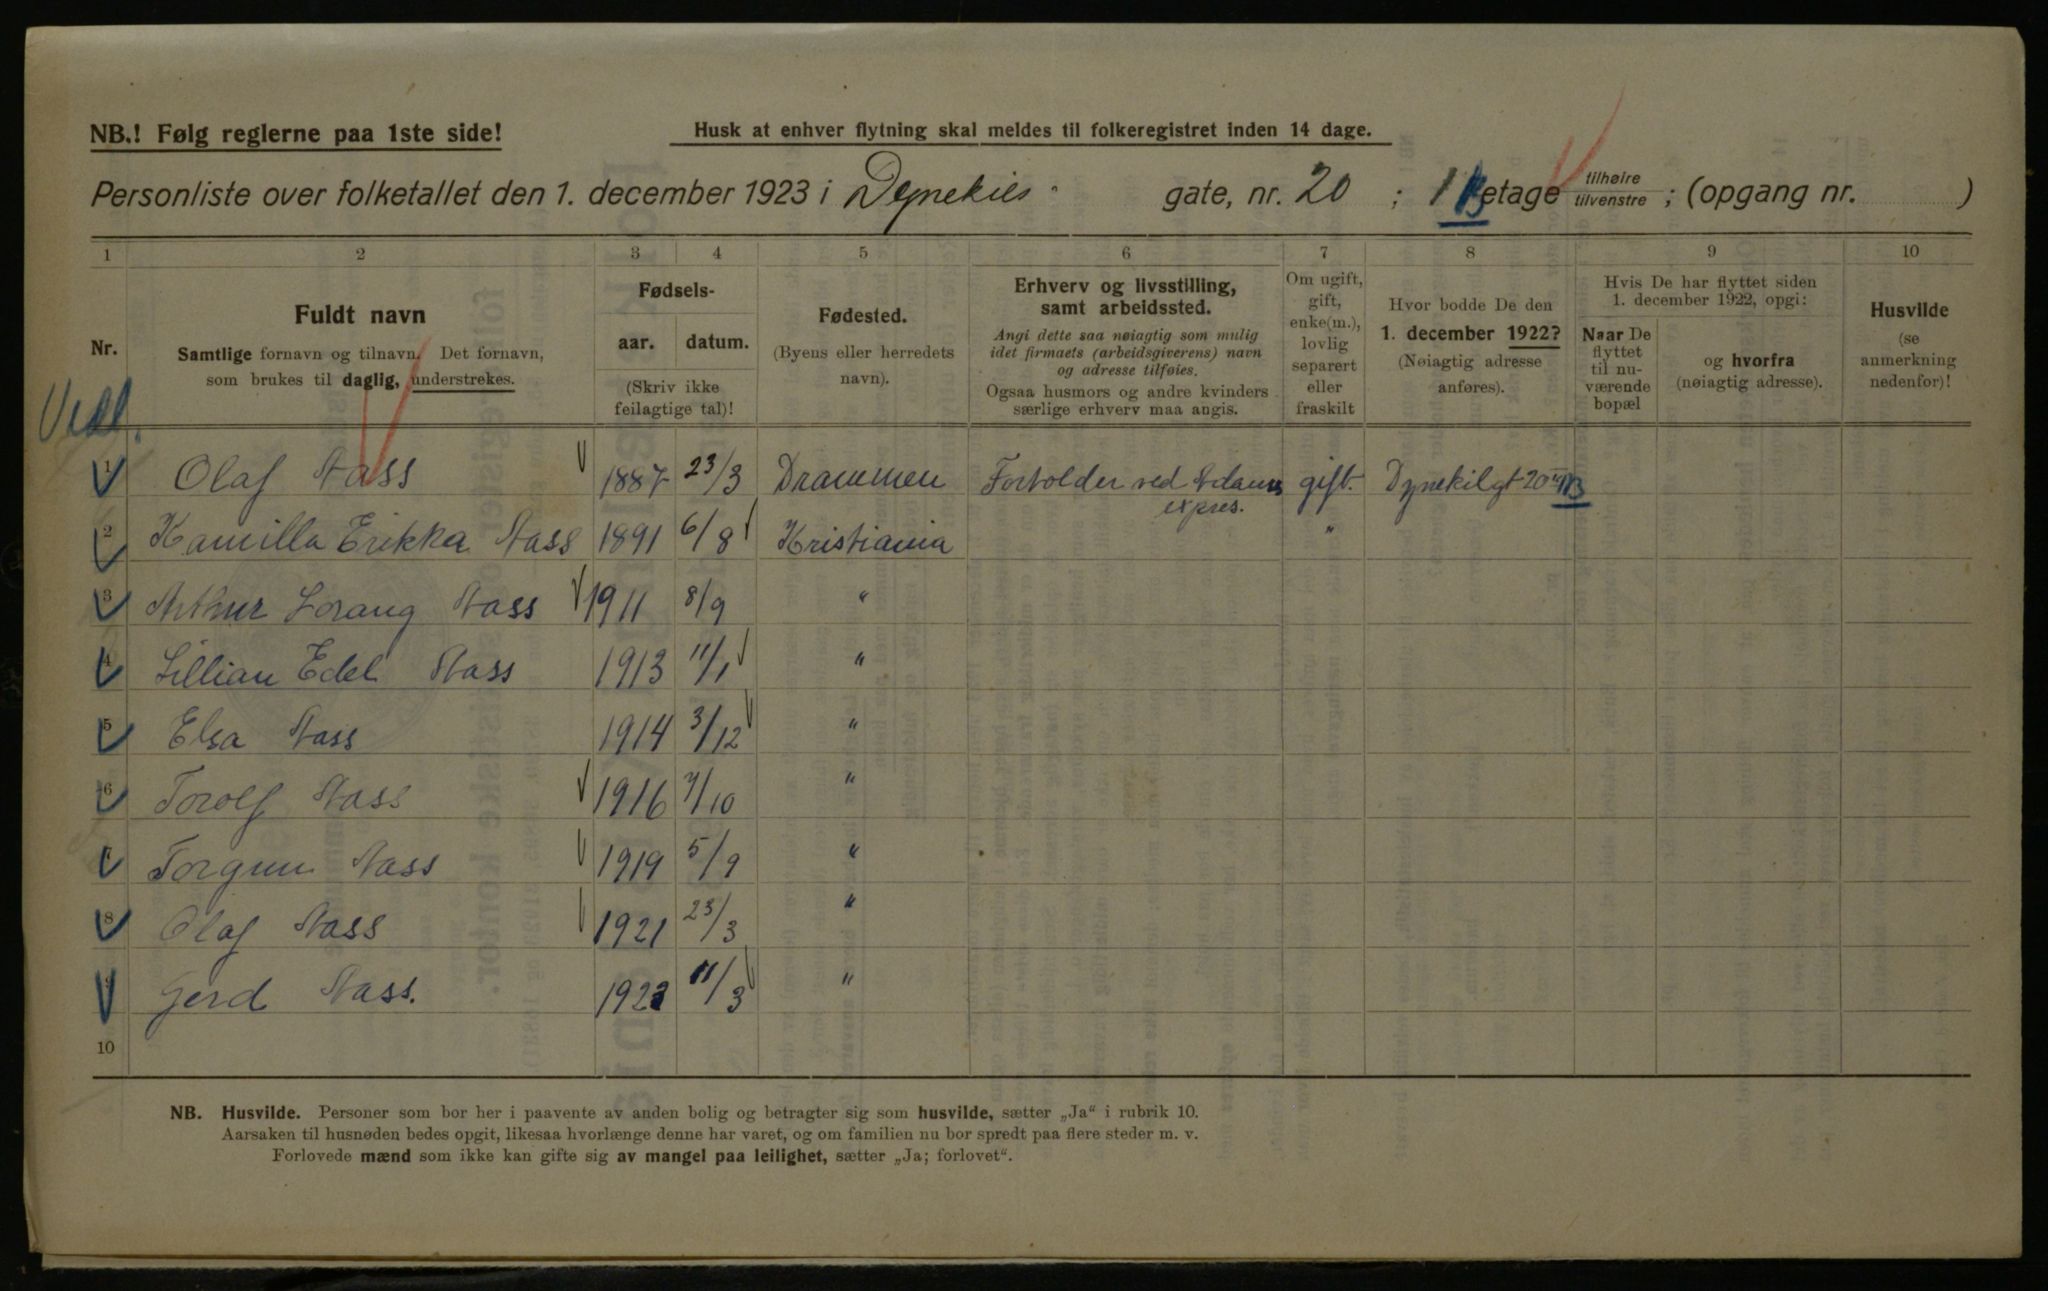 NB.! Følg reglerne paa 1ste side!
Husk at enhver flytning skal meldes til folkeregistret inden 14 dage.
Personliste over folketallet den 1. december 1923 i Dynekils gate, nr. 20 ; 1 B etage tilhøire tilvenstre ; (opgang nr. )
1 2 3 4 5 6 7 8 9 10
Nr.
Fuldt navn
Samtlige fornavn og tilnavn. Det fornavn,
som brukes til daglig, understrekes.
Fødsels-
aar. datum.
(Skriv ikke
feilagtige tal)!
Fødested.
(Byens eller herredets
navn).
Erhverv og livsstilling,
samt arbeidssted.
Angi dette saa nøiagtig som mulig
idet firmaets (arbeidsgiverens) navn
og adresse tilføies.
Ogsaa husmors og andre kvinders
særlige erhverv maa angis.
Om ugift,
gift,
enke(m.),
lovlig
separert
eller
fraskilt
Hvor bodde De den
1. december 1922?
(Nøiagtig adresse
anføres).
Hvis De har flyttet siden
1. december 1922, opgi:
Naar De
flyttet
til nu-
værende
bopæl
og hvorfra
(nøiagtig adresse).
Husvilde
(se
anmerkning
nedenfor)!
1 Olaf Aass 1887 23/3 Drammen Forvolder ved Adams expres. gift. Dynekilgt 20 B
2 Kamilla Erikka Aass 1891 6/8 Kristiania "
3 Arthur Lorang Aass 1911 8/9 "
4 Lillian Edel Aass 1913 11/1 "
5 Elsa Aass 1914 3/12 "
6 Torolf Aass 1916 7/10 "
7 Torgun Aass 1919 5/9 "
8 Olaf Aass 1921 23/3 "
9 Gerd Aass. 1923 11/3 "
10
NB. Husvilde. Personer som bor her i paavente av anden bolig og betragter sig som husvilde, sætter „Ja“ i rubrik 10.
Aarsaken til husnøden bedes opgit, likesaa hvorlænge denne har varet, og om familien nu bor spredt paa flere steder m. v.
Forlovede mænd som ikke kan gifte sig av mangel paa leilighet, sætter „Ja; forlovet“.